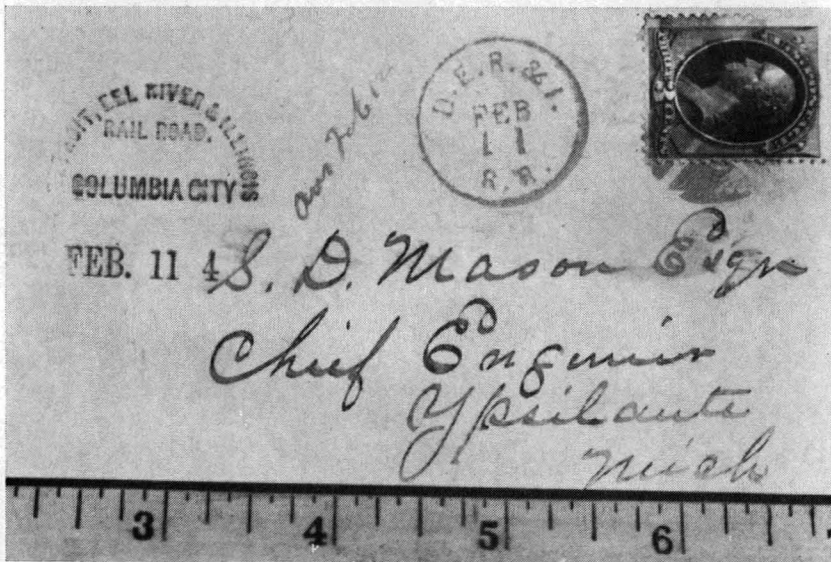 DETROIT, EEL RIVER & ILLINOIS
RAIL ROAD.
COLUMBIA CITY
FEB. 11 4
D. E. R. & I.
FEB
11
R. R.
S. D. Mason Esqr
Chief Engineer
Ypsilante
Mich
3 4 5 6